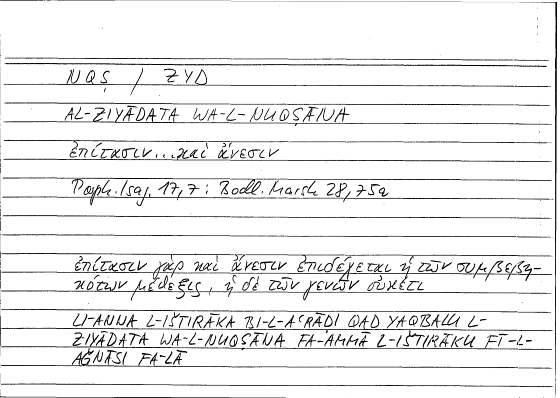 NQṢ / ZYD
AL-ZIYĀDATA WA-L-NUQṢĀNA
ἐπίτασιν...καὶ ἄνεσιν
Porph. Isag. 17,7 : Bodl. Marsh 28, 75a
ἐπίτασιν γὰρ καὶ ἄνεσιν ἐπιδέχεται ἡ τῶν συμβεβη-
κότων μέθεξις, ἡ δὲ τῶν γενῶν οὐκέτι
LI-ANNA L-IŠTIRĀKA BI-L-AʿRĀḌI QAD YAQBALU L-
ZIYĀDATA WA-L-NUQṢĀNA FA-AMMĀ L-IŠTIRĀKU FĪ-L-
AǦNĀSI FA-LĀ